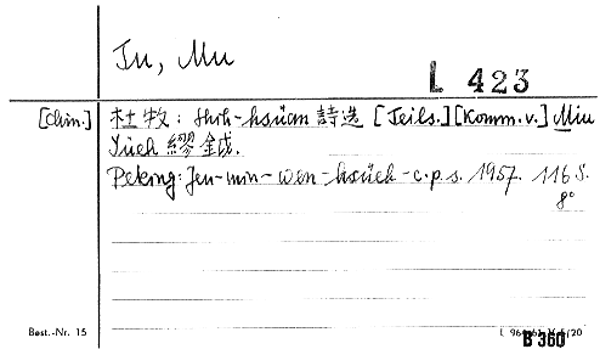 Tu, Mu
L 423
[chin.] 杜牧: Shih-hsüan 詩选 [Teils.] [Komm. v.] Miu
Yüeh 繆鉞.
Peking: Jen-min-wen-hsüeh-c.p.s. 1957. 116 S.
8°
Best.-Nr. 15
B 360